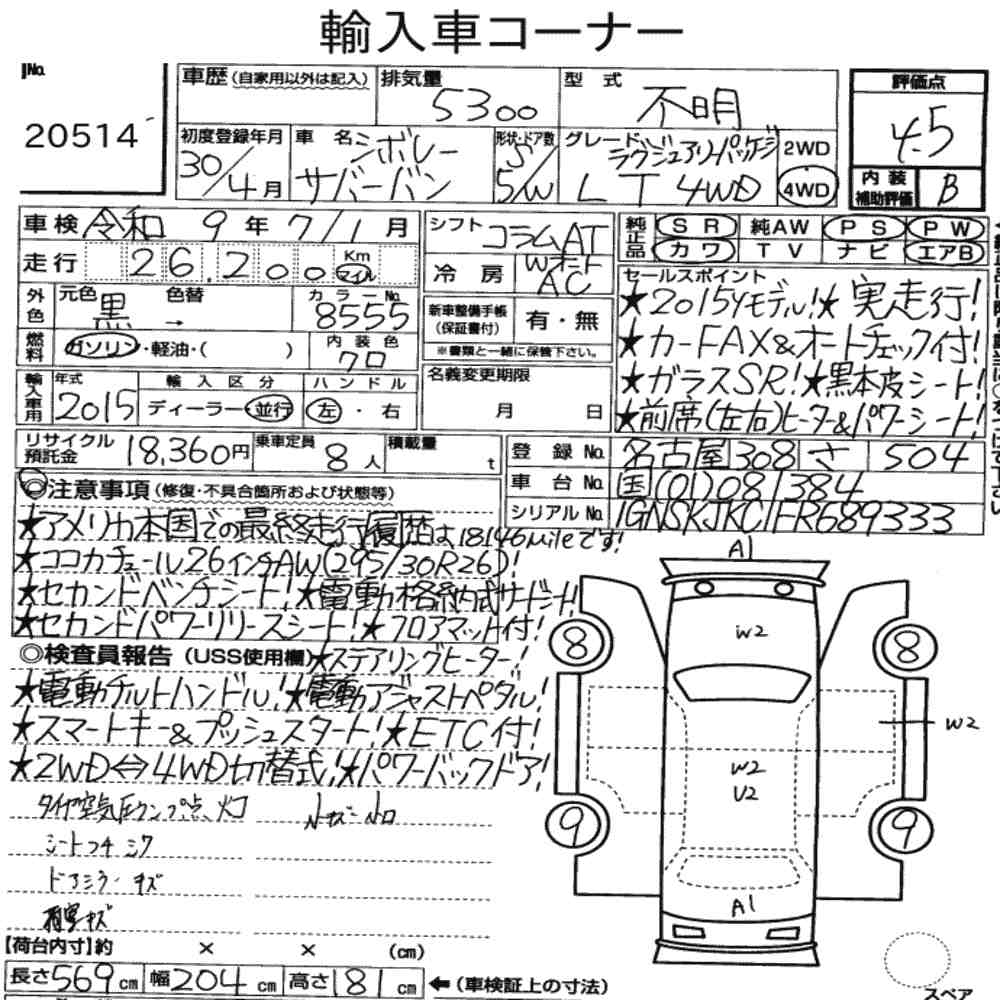 輸入車コーナー
No.
20514
車歴 (自家用以外は記入)
排気量
5300
型式
不明
評価点
4.5
初度登録年月
30/4月
車名
シボレー
サバーバン
形状・ドア数
5/W
グレード
ラグジュアリーパッケージ
LT 4WD
2WD
4WD
内装
補助評価
B
車検 令和 9年 7/1月
シフト
コラムAT
純正品
SR 純AW PS PW
カワ TV ナビ エアB
走行 26,200 Km マイル
冷房
Wオート
AC
外色
元色
黒
色替
→
カラーNo.
8555
新車整備手帳
(保証書付)
有・無
※書類と一緒に保管下さい。
燃料
ガソリン・軽油・( )
内装色
クロ
輸入車用
年式
2015
輸入区分
ディーラー・並行
ハンドル
左・右
名義変更期限
月 日
セールスポイント
★2015Yモデル!★実走行!
★カーFAX&オートチェック付!
★ガラスSR!★黒本皮シート!
★前席(左右)ヒータ&パワーシート!
リサイクル
預託金
18,360円
乗車定員
8人
積載量
t
登録No.
名古屋 308 さ 504
車台No.
国(01)081384
シリアルNo.
1GNSKJKC1FR689333
◎注意事項(修復・不具合箇所および状態等)
★アメリカ本国での最終走行履歴は18146mileです!
★ココカチュール26インチAW(295/30R26)!
★セカンドベンチシート!★電動格納式サードシート!
★セカンドパワーリリースシート!★フロアマット付!
◎検査員報告(USS使用欄)★ステアリングヒーター!
★電動チルトハンドル!★電動アジャストペダル!
★スマートキー&プッシュスタート!★ETC付!
★2WD⇔4WD切替式!★パワーバックドア!
タイヤ空気圧ランプ点灯
シートコゲ シワ
ドアミラーキズ
【荷台内寸】約 × × (cm)
長さ569cm 幅204cm 高さ181cm ←(車検証上の寸法)
A1
W2
8
8
W2
W2
U2
9
9
A1
スペア